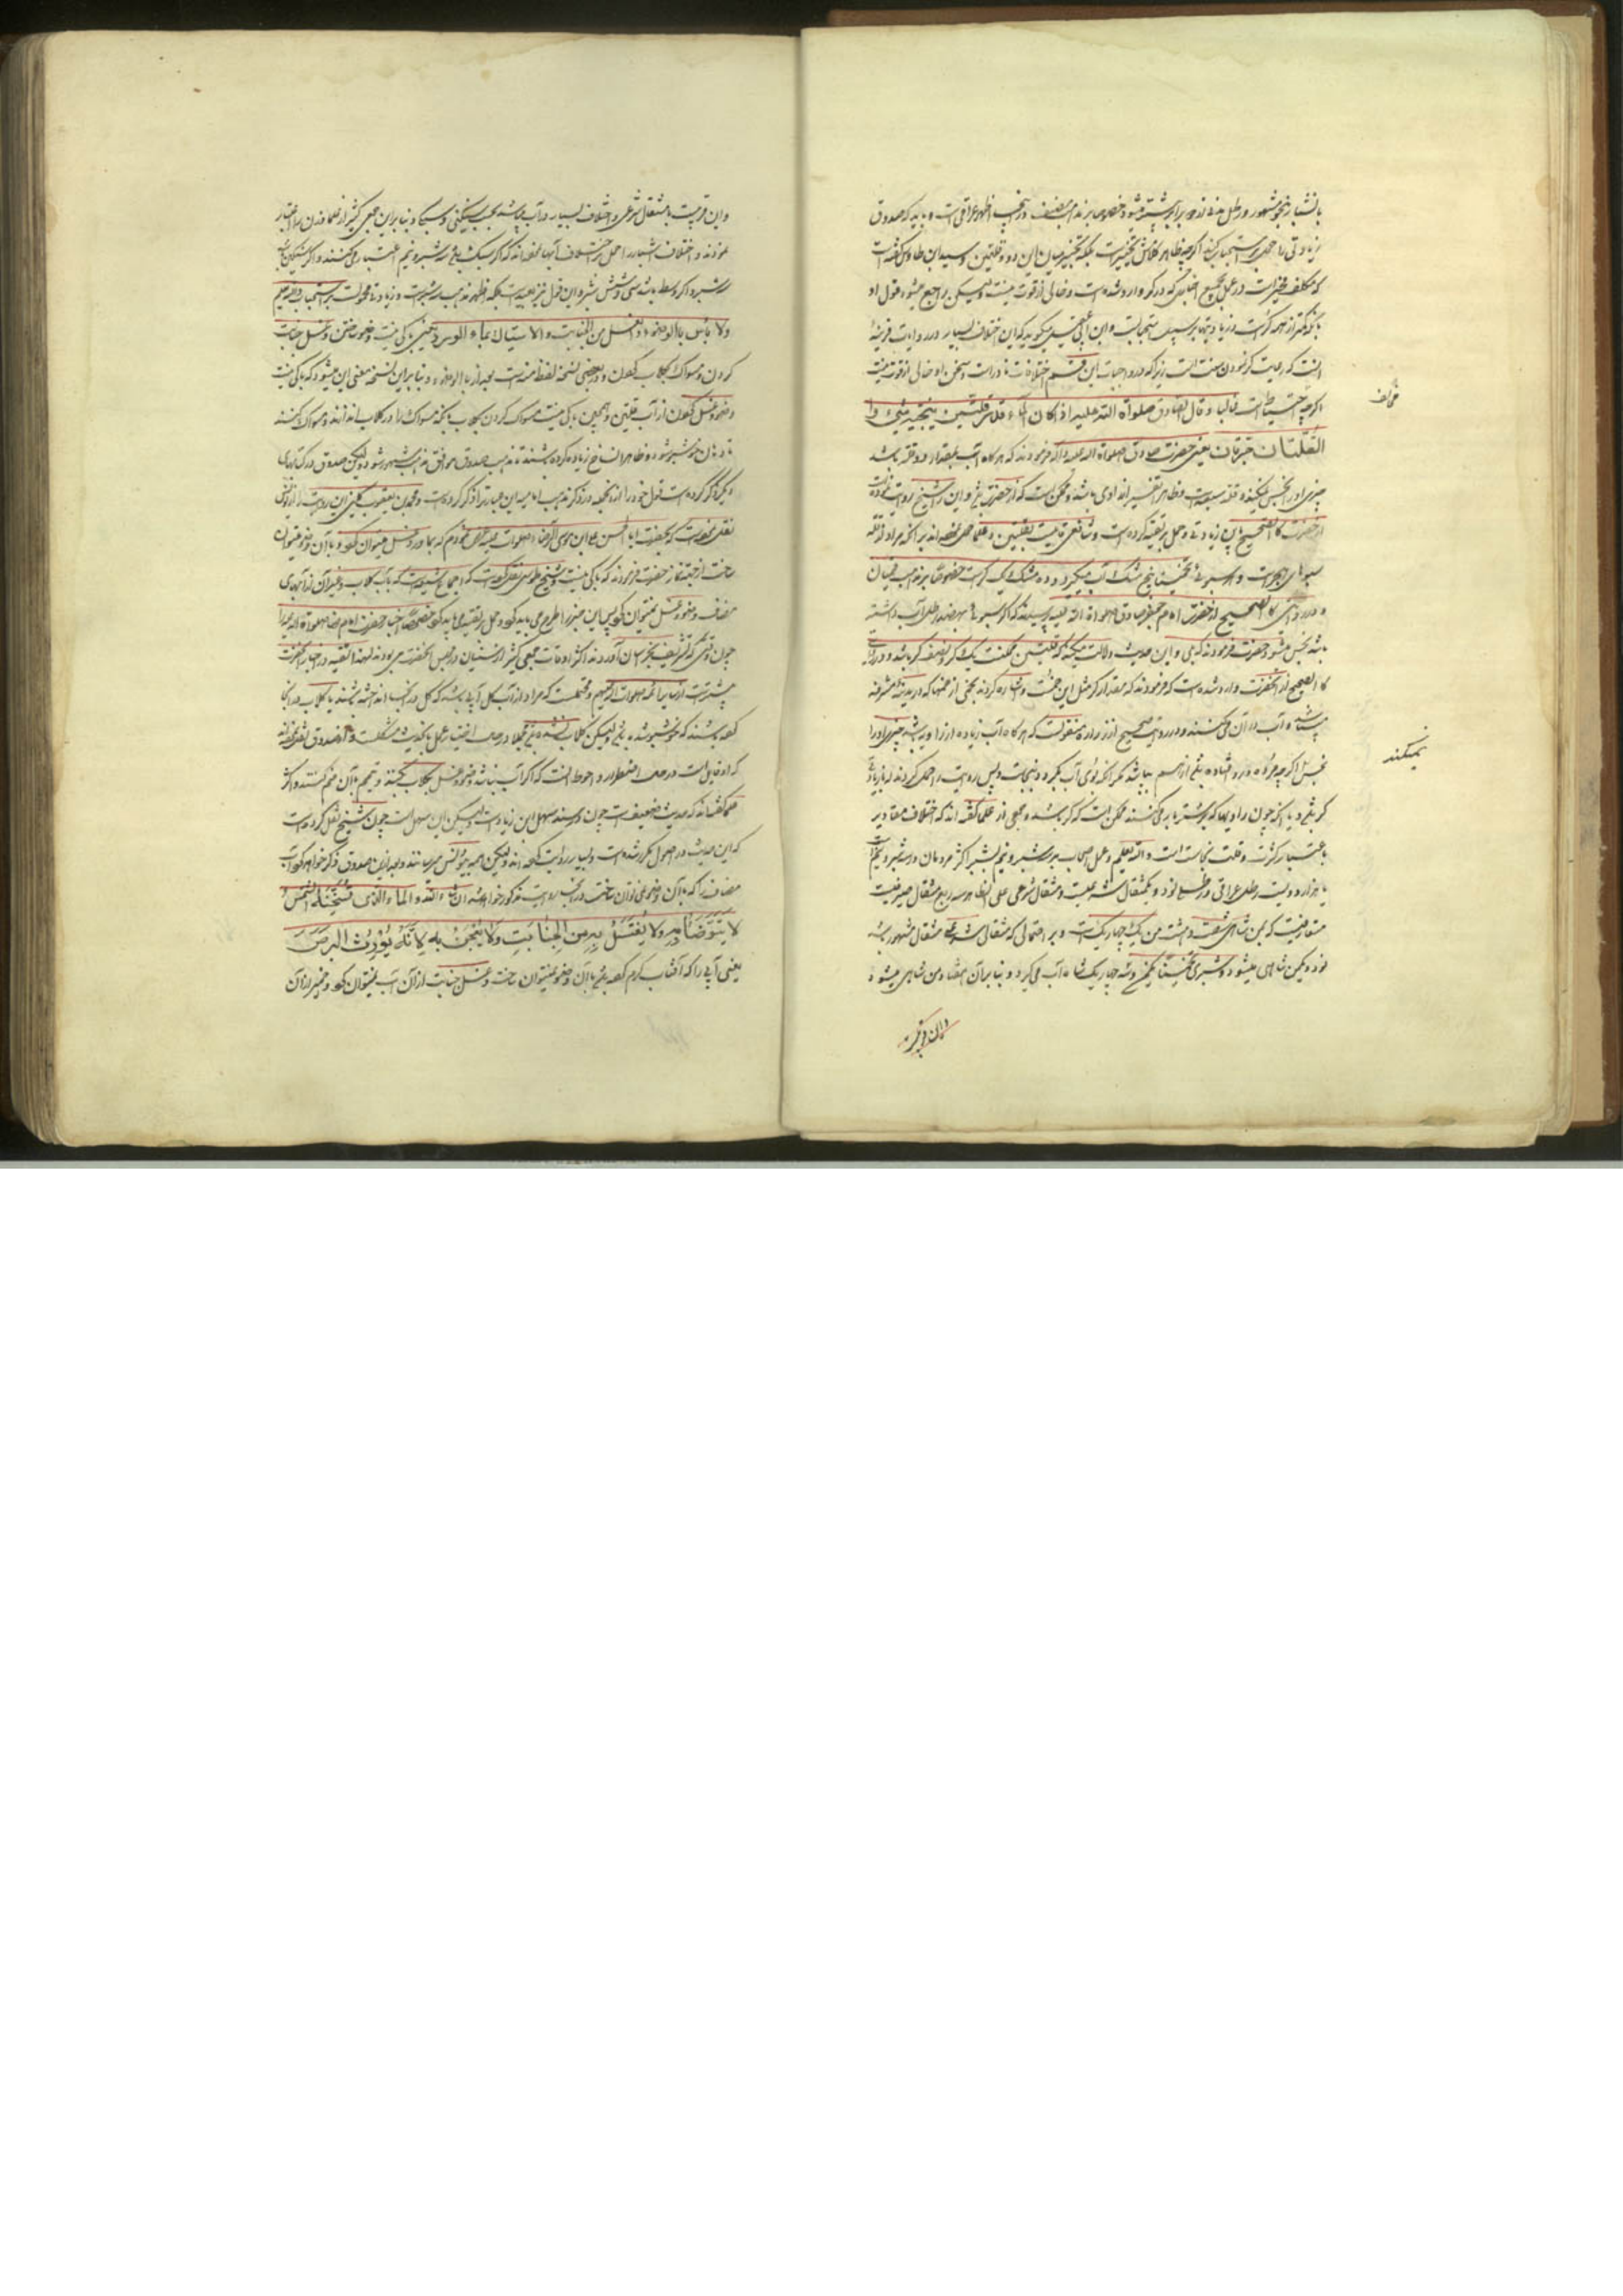 باشبار نحو مشهور و رطل مدنی
زیادتی را حمل بر استحباب کنند اگر چه ظاهر کلامش تخییر است بلکه تخییر میان این دو و قلتین و سید ابن طاوس گفته است
که مکلف مخیر است در عمل بجمیع اخباری که در کر وارد شده است و خالی از قوت نیست و لیکن راجع میشود بقول او
بآنکه کمتر از همه کر است و زیادتیها بر سبیل استحباب است و این که این اختلاف بسیار در روایت قرینهٔ
آنست که رعایت کر نمودن سنت است زیرا که در واجبات این قسم اختلافات نادر است و سخن او خالی از قوت نیست
اگر چه احتیاط است و قال الصادق صلواة الله علیه اذا کان الماء قدر قلتین لم ینجسه شیء و
القلتان جرتان یعنی حضرت صادق صلواة الله علیه فرمودند که هر گاه آب بمقدار دو قله باشد
چیزی او را نجس نمیکند و قله سبو است و ظاهرا تفسیر از راوی باشد و ممکن است که از حضرت باشد و این را شیخ روایت نموده است
از حضرت کالصحیح باین زیادتی و حمل بر تقیه کرده است و شافعی قایلست بقلتین و علما حمل نموده اند بر آنکه مراد از قله
سبوهای هجر است و هر سبوئی تخمینا پنج مشک آب میگیرد و ده مشک یک کر است خصوصا بر مذهب قمیان
و در روایتی کالصحیح از حضرت امام جعفر صادق صلواة الله علیه پرسیدند که اگر سبوئی نهصد رطل آب داشته
باشد نجس میشود حضرت فرمودند که بلی و این حدیث دلالت میکند که قلتین ممکنست یک کر و نصف کر باشد و در روایت
کالصحیح از آنحضرت وارد شده است که فرمودند که مقدار کر مثل این خم است و اشاره کردند بخمی از خمهائی که در مدینهٔ مشرفه
میباشد و آب در آن میکنند و در روایت صحیح از زراره منقولست که هر گاه آب زیاده از راویه باشد چیزی او را
نجس اگر چه مرده در او افتاده باشد از هم نپاشد مگر آنکه بوی آب بگیرد و بوی نجاست و پس روایت را حمل کرده اند که راویه
کر باشد و یا آنکه چون راویها که بر شتر بار میکنند ممکن است که کر باشد و جمعی از علما گفته اند که اختلاف مقادیر
باعتبار کثرت و قلت نجاست است و الله یعلم و عمل اصحاب بر سه شبر و نیم بشبر اکثر مردمان در سه شبر و نیم است
یا هزار و دویست رطل عراقی و رطلی نود و یکمثقال است و مثقال شرعی علی الظاهر سه ربع مثقال صیرفیست
متعارفیست که بمن شاهی شصت و هشت من و یک چهار یک است و بر احتمالی که مثقال شرعی مثقال مشهور باشد
نود و یکمن شاهی میشود و شبری تخمینا یکمن و سه چهار یک شاه آب میگیرد و بنا بر آن هفتاد و من شاهی میشود
مخالف
نمیکند
و این قریب
و این قریبست بمثقال شرعی و اختلاف بسیار در آب میباشد بحسب سنگینی و سبکی و بنا بر این جمعی کثیر از علما وزن را اعتبار
نموده اند و اختلاف اشبار را حمل بر اختلاف آبها نموده اند که اگر سبک باشد سه شبر و نیم اعتبار میکنند و اگر سنگین باشد
سه شبر و اگر وسط باشد سی و شش شبر و این قول نیز بعید نیست بلکه اظهر مذهب سه شبر است و زیادتی محمولست بر استحباب و الله یعلم
ولا باس بالوضوء و الغسل من الجنابت و الاستیاک بماء الورد یعنی باکی نیست وضو ساختن و غسل جنابت
کردن و مسواک بگلاب کردن و در بعضی نسخه لفظ منه است بعد از بالوضوء و بنا بر این نسخه معنی این میشود که باکی نیست
وضو و غسل کردن از آب قلتین و همچنین باکی نیست مسواک کردن بگلاب بآنکه مسواک را در گلاب اندازند و مسواک کنند
تا دهان خوشبو شود و ظاهرا نساخ زیاده کرده باشند تا مذهب صدوق موافق مذهب مشهور شود و لیکن صدوق در کتابهای
دیگر ذکر کرده است قول خود را از جمله در ذکر مذهب امامیه این عبارت را ذکر کرده است و محمد بن یعقوب کلینی این روایت را از یونس
نقل نموده است که بحضرت ابا الحسن علی ابن موسی الرضا صلوات الله علیه عرض نمودم که بماء ورد غسل میتوان کرد و بآن وضو میتوان
ساخت از جهة نماز حضرت فرمودند که باکی نیست و شیخ طوسی نقل کرده است که اجماع شیعه است که بآب گلاب و غیر آن از آبهای
مضاف وضو و غسل نمیتوان کرد پس این خبر را طرح می باید کرد و حمل بر تقیه می باید کرد خصوصا اخبار حضرت امام رضا صلواة الله علیه را
چون وقتی که تشریف بخراسان آوردند اکثر اوقات جمعی کثیر از سنیان در مجلس آنحضرت می بودند لهذا تقیه در اخبار آنحضرت
بیشتر است از سایر ائمه صلوات الله علیهم و محتملست که مراد از آب گل آبی باشد که گل در آنجا انداخته باشند یا گلاب در آنجا
کرده باشند که خوشبو شده باشد و لیکن گلاب نشده باشد مجملا در حال اختیار عمل باین حدیث مشکلست و از صدوق نقل نموده اند
که او قایل است در حال اضطرار و احوط آنست که اگر آب نباشد وضو و غسل بگلاب بکنند و تیمم بآن ضم کنند و اکثر
علما گفته اند که حدیث ضعیف است چون در سند سهل ابن زیاد است و لیکن این سهل است چون شیخ نقل کرده است
که این حدیث در اصول مکرر شده است و بسیار روایت کرده اند و لیکن همه بیونس میرسانند و بعد از این صدوق ذکر خواهد کرد آب
مضاف را که بآن وضو نمی توان ساخت در آنجا روایت مذکور خواهد شد ان شاء الله و الماء الذی تسخنه الشمس
لا یتوضأ به ولا یغتسل به من الجنابت ولا یعجن به لانه یورث البرص
یعنی آبی را که آفتاب گرم کرده باشد بآن وضو نمیتوان ساخت و غسل جنابت از آن آب نمیتوان کرد و خمیر از آن